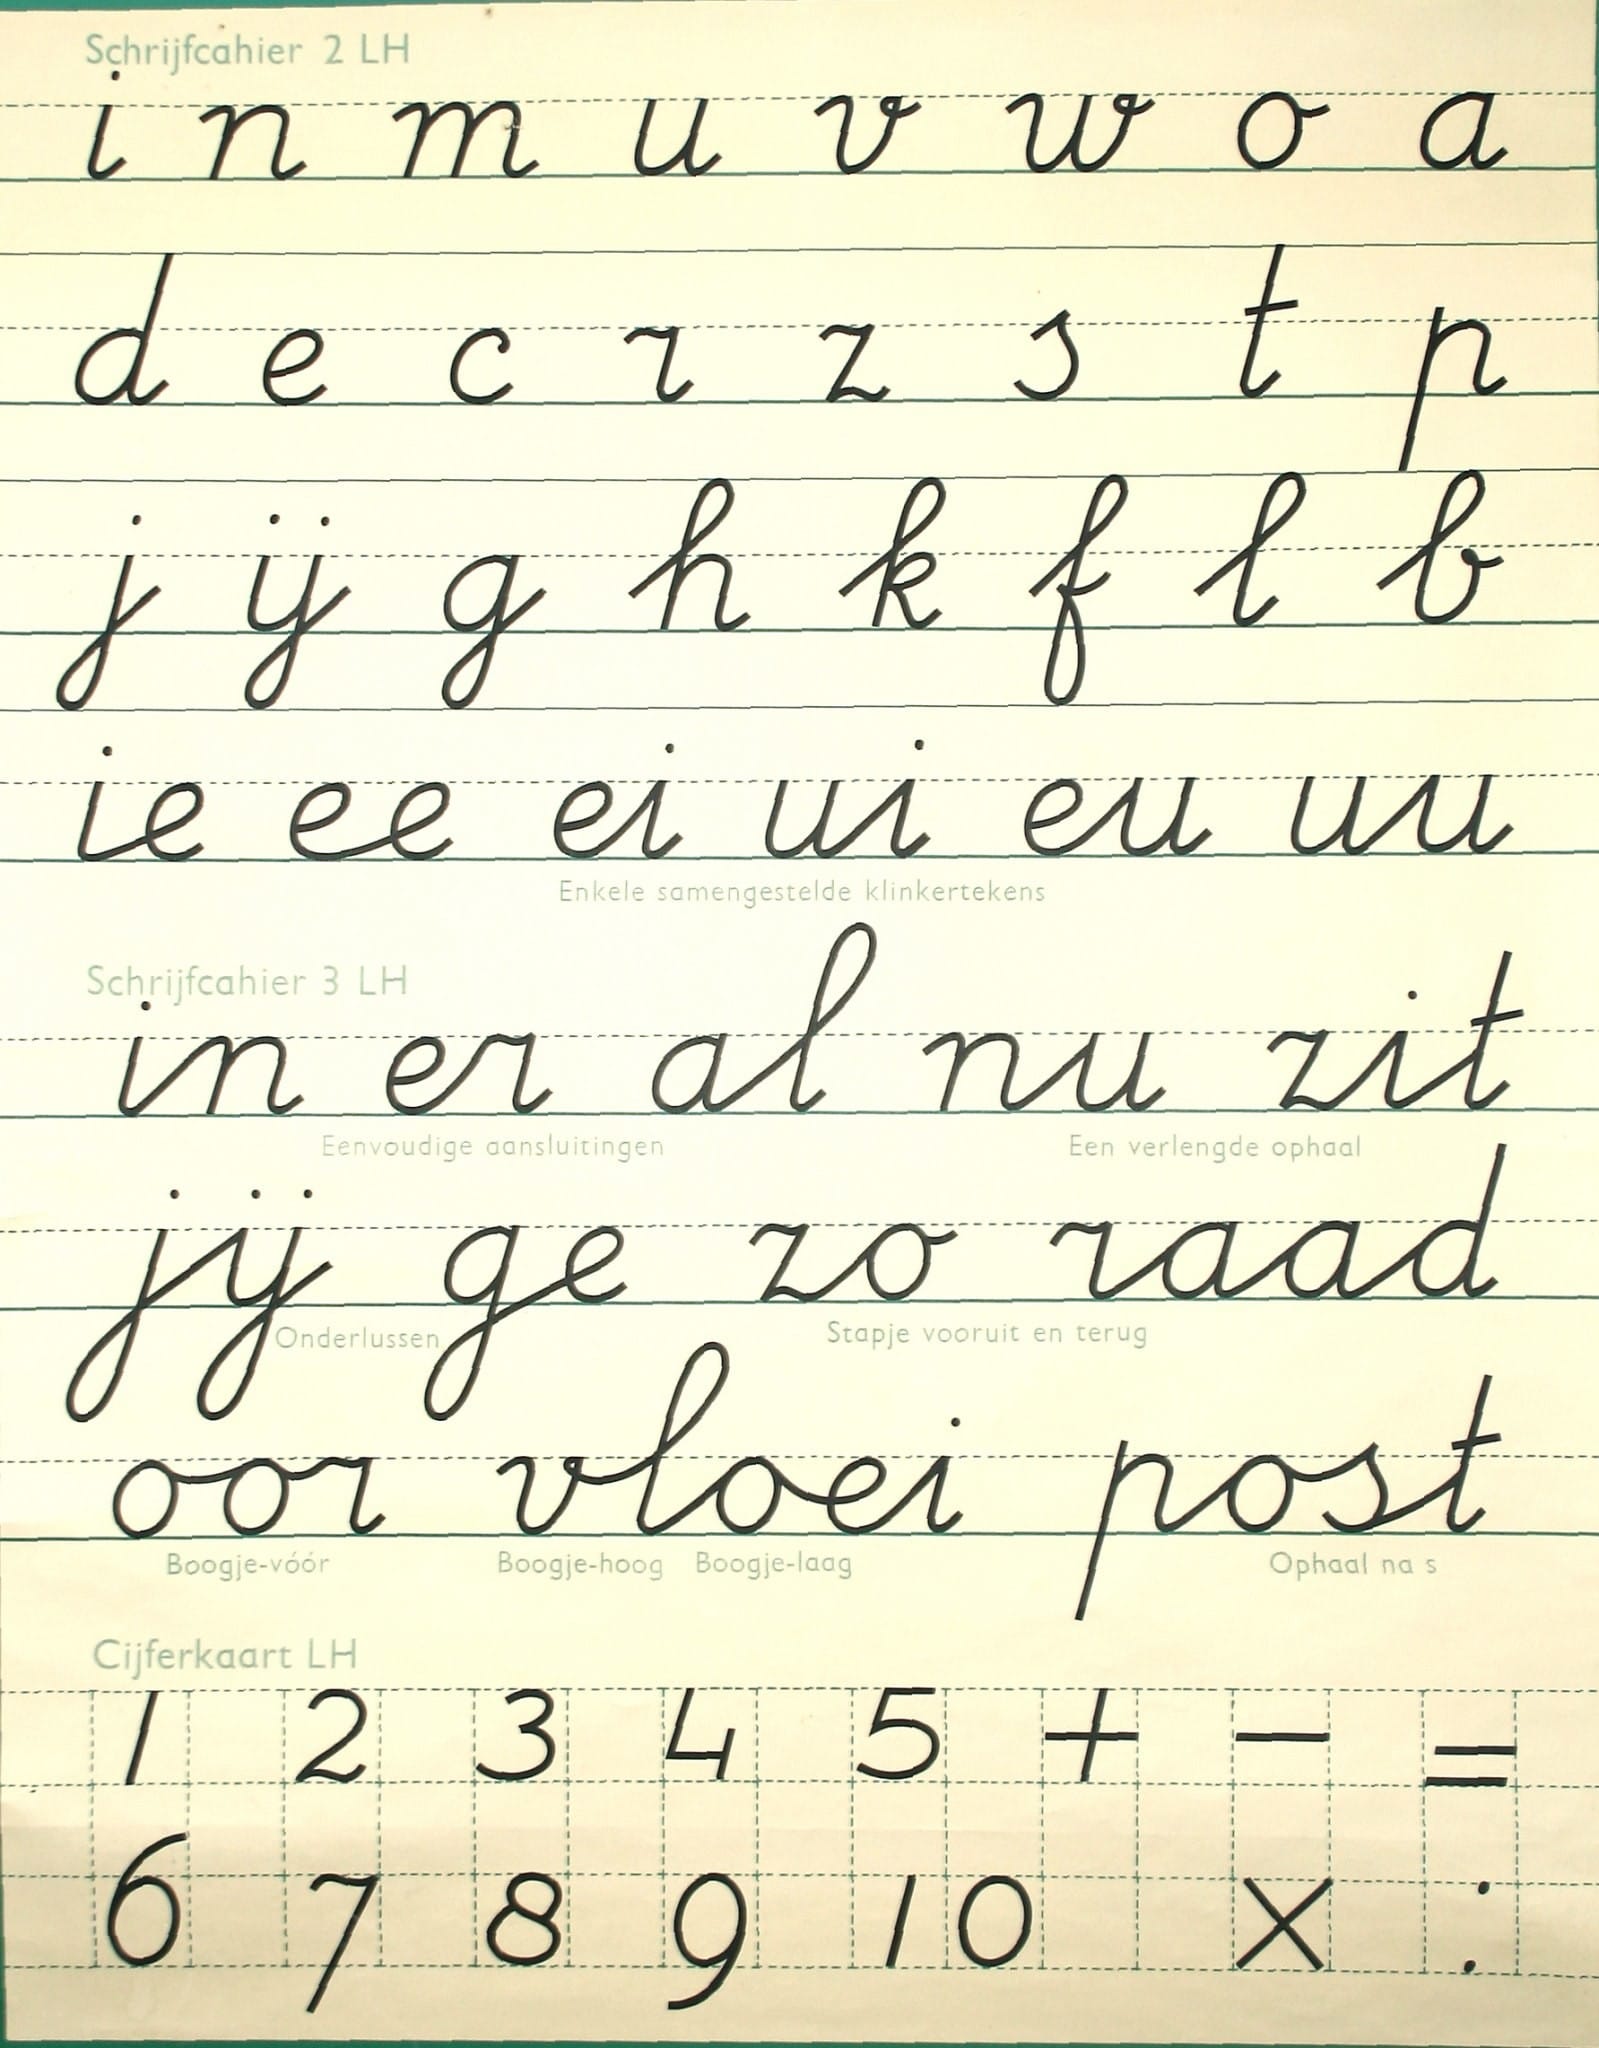 Schrijfcahier 2 LH
i n m u v w o a
d e c r z s t p
j ij g h k f l b
ie ee ei ui eu uu
Enkele samengestelde klinkertekens
Schrijfcahier 3 LH
in er al nu zit
Eenvoudige aansluitingen Een verlengde ophaal
jij ge zo raad
Onderlussen Stapje vooruit en terug
oor vloei post
Boogje-vóór Boogje-hoog Boogje-laag Ophaal na s
Cijferkaart LH
1 2 3 4 5 + - =
6 7 8 9 10 × :